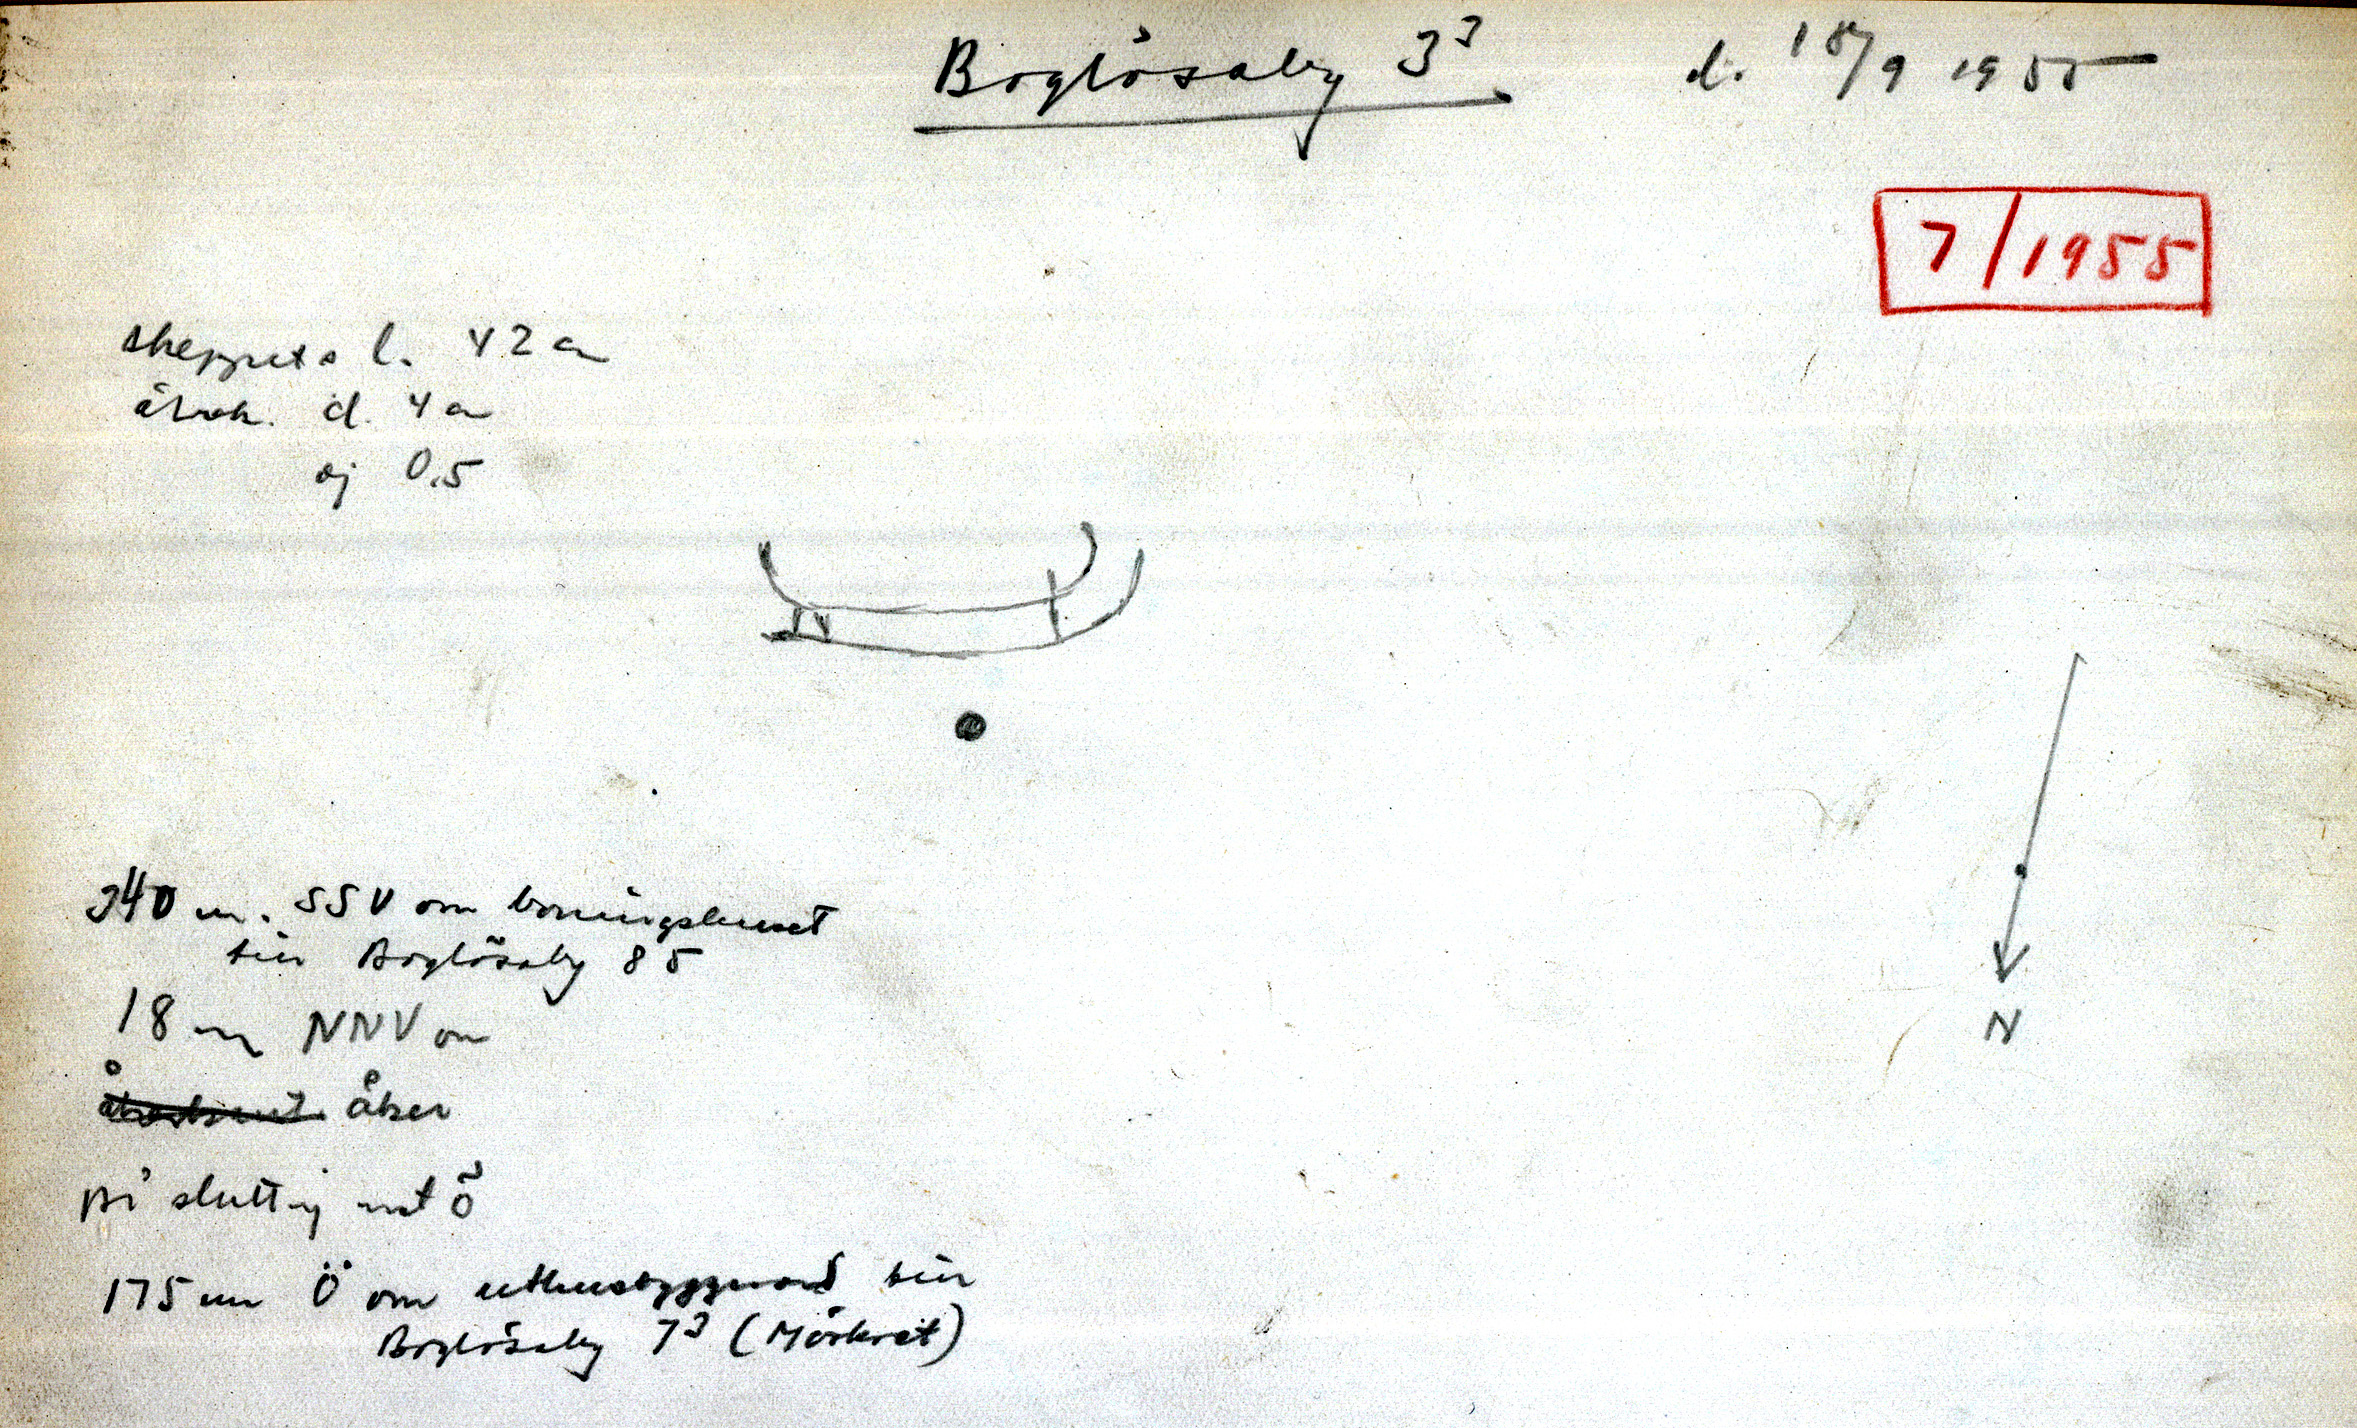 Boglösaby 3³ d. 18/9 1955
7/1955
skeppets l. 42 cm
älvk. d. 4 cm
dj 0.5
340 m. SSV om boningshuset
till Boglösaby 85
18 m NNV om
åker
på sluttnig mot Ö
175 m Ö om uthusbyggnad till
Boglösaby 7³ (Mörkret)
N